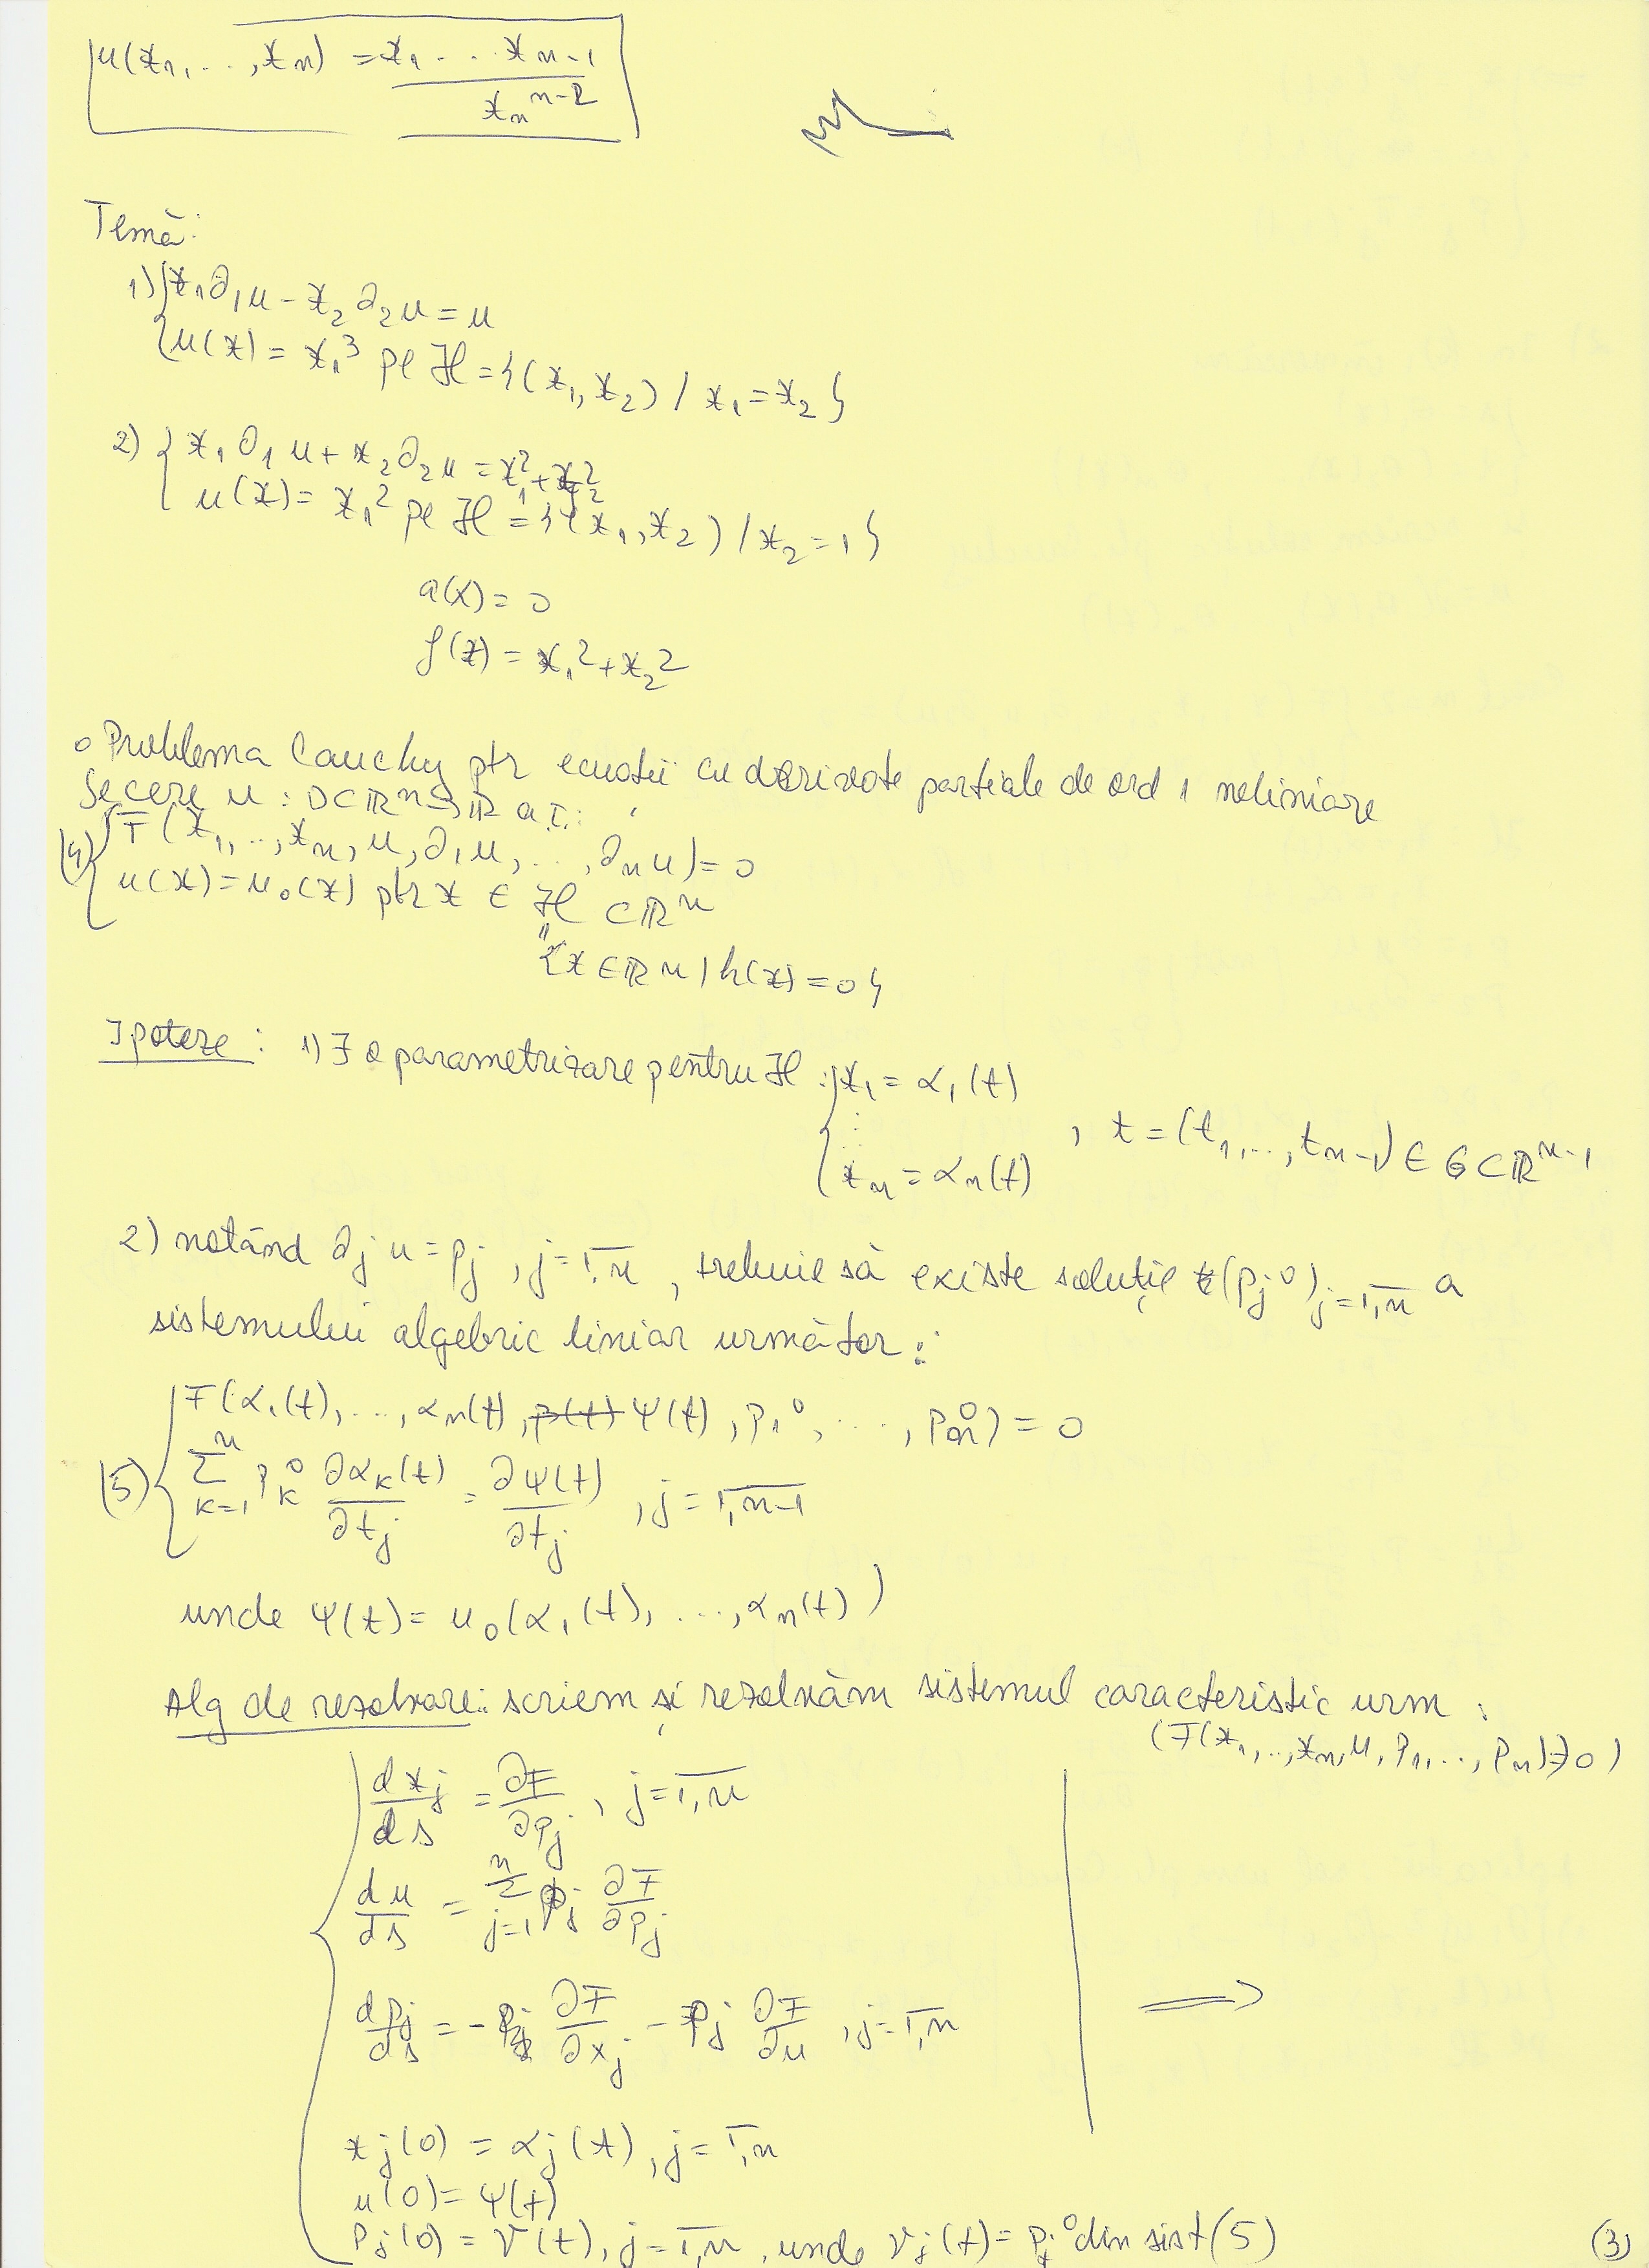 u(x₁,...,xₙ) = x₁...xₙ₋₁ / xₙⁿ⁻²
Temă:
1) { x₁∂₁u - x₂∂₂u = u
u(x) = x₁³ pe ℋ = {(x₁,x₂) / x₁=x₂}
2) { x₁∂₁u + x₂∂₂u = x₁²+x₂²
u(x) = x₁² pe ℋ = {(x₁,x₂) / x₂=1}
a(x) = 0
f(x) = x₁²+x₂²
o Problema Cauchy ptr ecuatii cu derivate partiale de ord 1 neliniare
Se cere u : D⊂ℝⁿ→ℝ a.î.:
(4) { F(x₁,...,xₙ,u,∂₁u,...,∂ₙu) = 0
u(x) = u₀(x) ptr x ∈ ℋ ⊂ ℝⁿ
"
{x∈ℝⁿ / h(x)=0}
Ipoteze : 1) ∃ o parametrizare pentru ℋ : { x₁ = α₁(t)
⋮ , t=(t₁,...,tₙ₋₁) ∈ G⊂ℝⁿ⁻¹
xₙ = αₙ(t)
2) notând ∂ⱼu = pⱼ , j=1,n , trebuie să existe soluție (pⱼ⁰)ⱼ₌₁,ₙ a
sistemului algebric liniar următor :
(5) { F(α₁(t),...,αₙ(t), p(t) ψ(t), p₁⁰,...,pₙ⁰) = 0
∑ₖ₌₁ⁿ pₖ⁰ ∂αₖ(t)/∂tⱼ = ∂ψ(t)/∂tⱼ , j=1,n-1
unde ψ(t) = u₀(α₁(t),...,αₙ(t))
Alg de rezolvare : scriem și rezolvăm sistemul caracteristic urm :
(F(x₁,...,xₙ,u,p₁,...,pₙ)=0)
{ dxⱼ/ds = ∂F/∂pⱼ , j=1,n
du/ds = ∑ⱼ₌₁ⁿ pⱼ ∂F/∂pⱼ
dpⱼ/ds = - pⱼ ∂F/∂xⱼ - pⱼ ∂F/∂u , j=1,n ⟹
xⱼ(0) = αⱼ(t) , j=1,n
u(0) = ψ(t)
pⱼ(0) = γ(t), j=1,n , unde γⱼ(t) = pⱼ⁰ din sist (5)
(3)